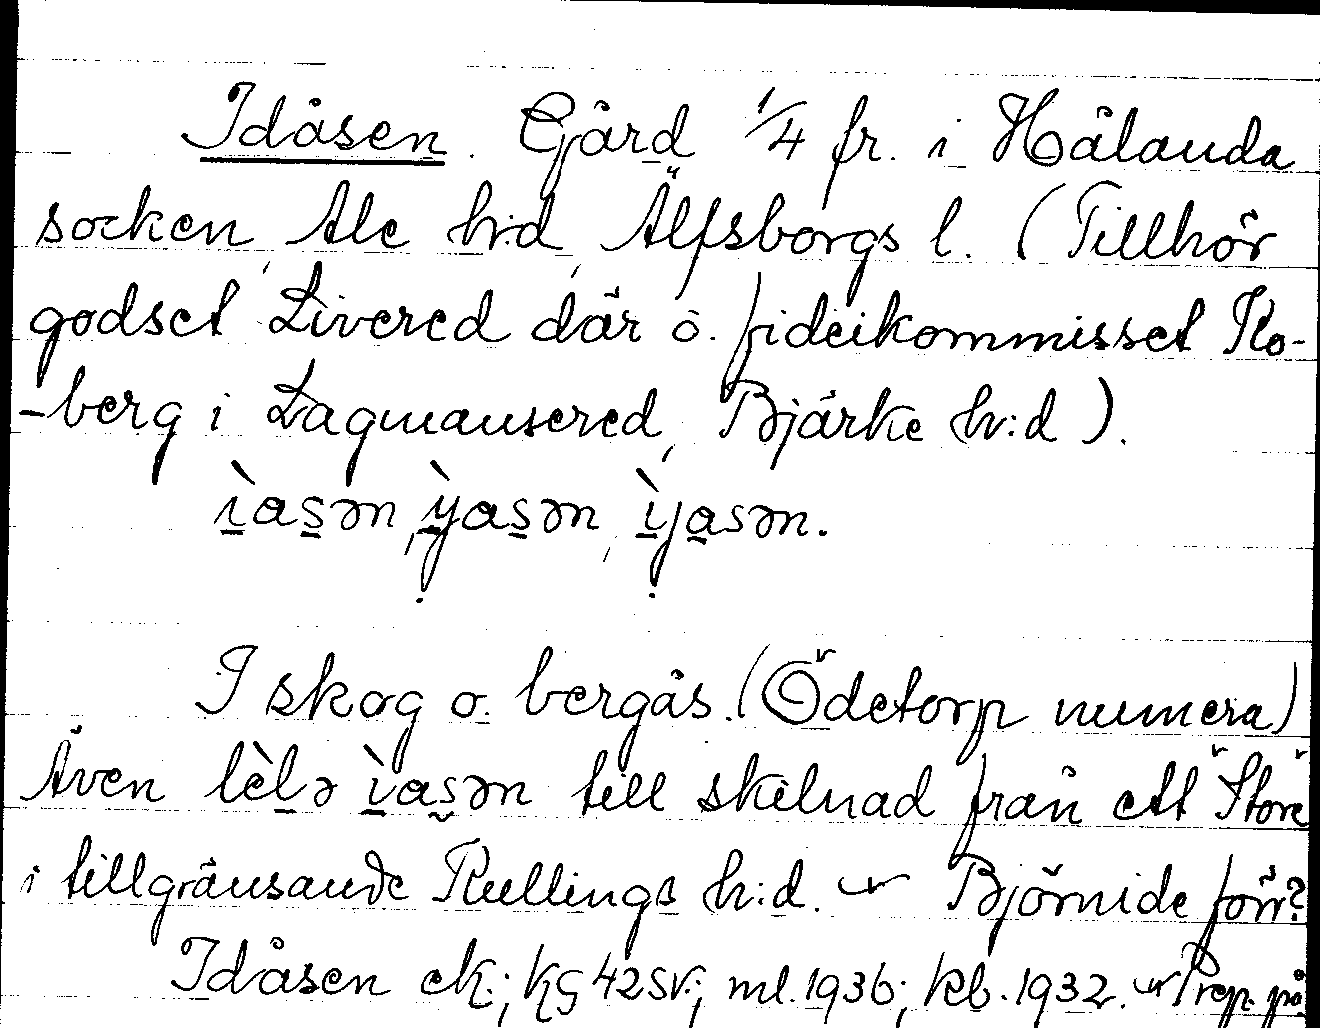 Idåsen. Gård 1/4 fr. i Hålanda
socken, Ale h:d, Älfsborgs l. (Tillhör
godset Livered där o. fideikommisset Ko-
-berg i Lagmansered, Bjärke h:d).
ìasən, ỳasən, ìyasən.
I skog o. bergås. (Ödetorp numera)
Även lèlə ìasən till skilnad från ett "Store"
i tillgränsande Kullings h:d. Björnide förr?
Idåsen ek.; kg 42SV.; ml. 1936; kb. 1932. Prep. på